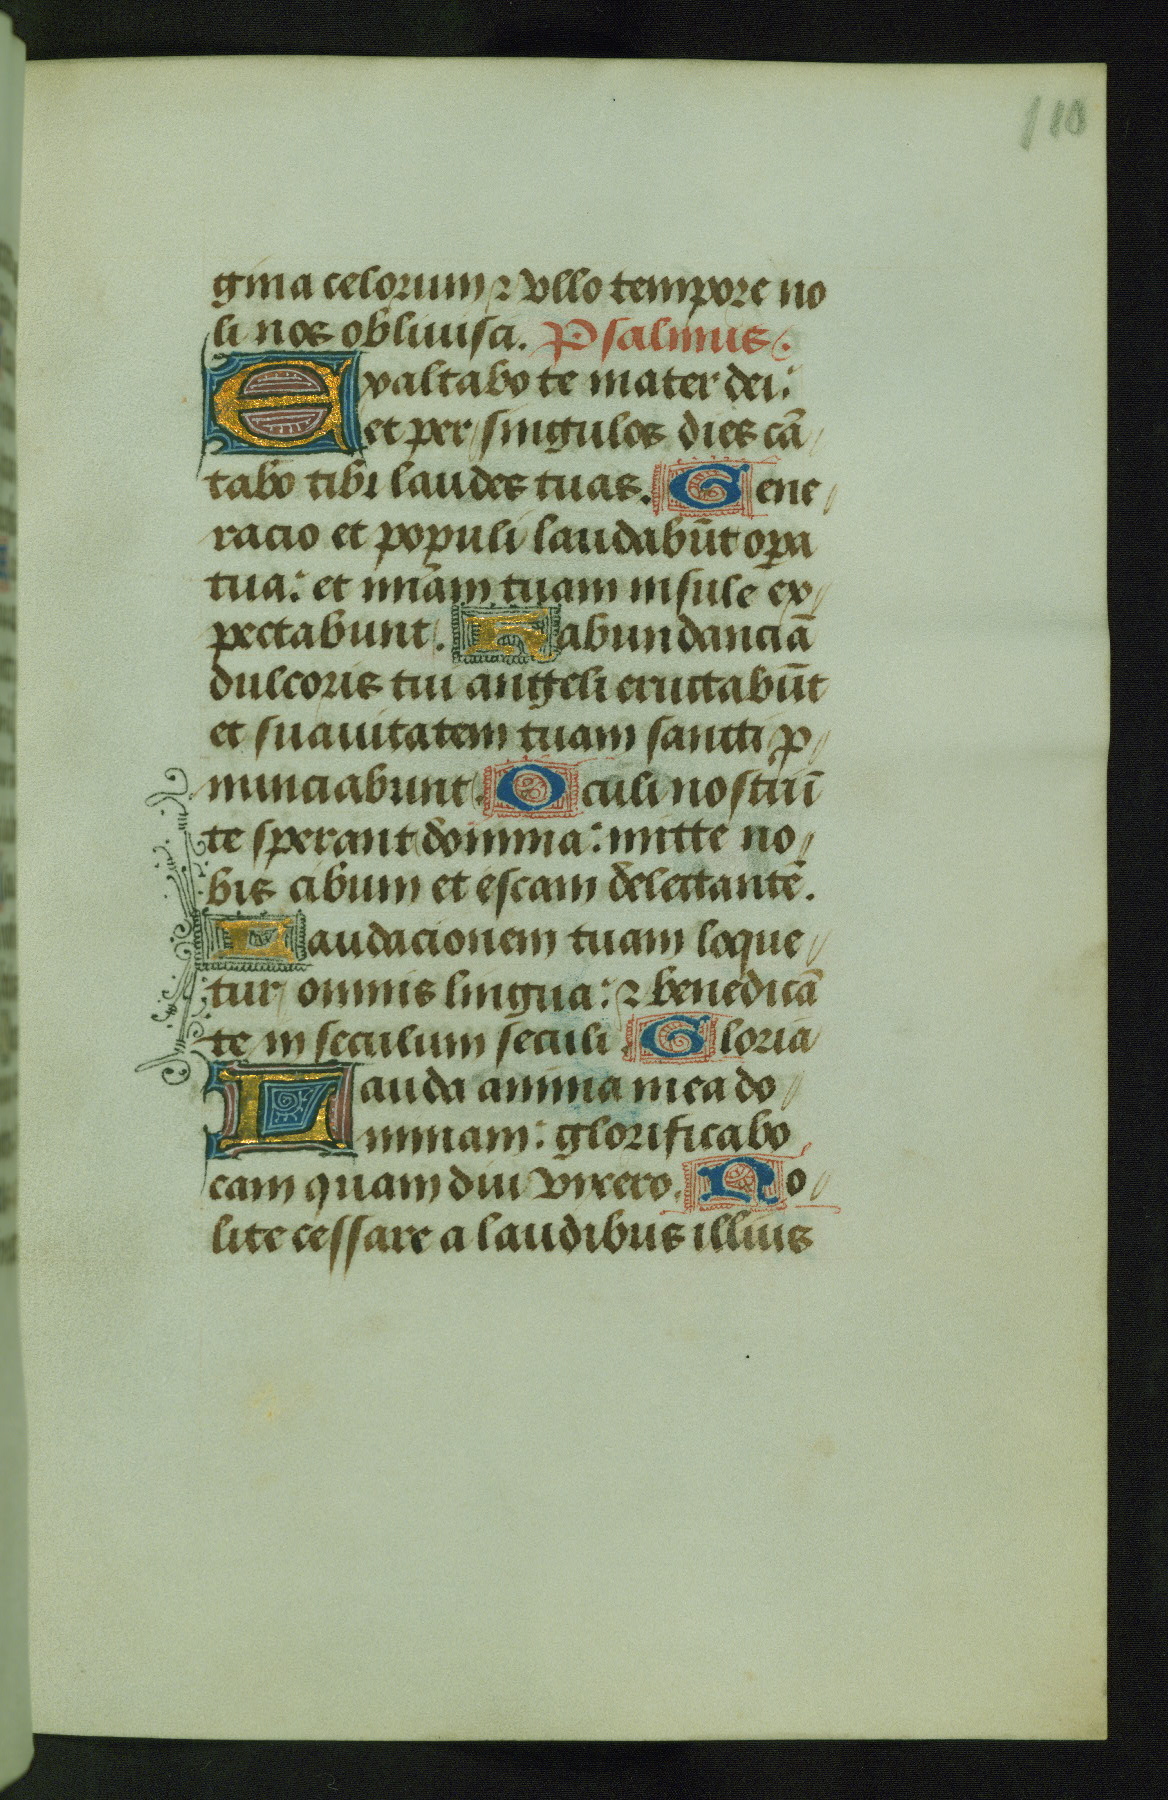 110
gina celorum ⁊ vllo tempore no
li nos obliuisci. Psalmus.
Exaltabo te mater dei:
et per singulos dies cā
tabo tibi laudes tuas. Gene
racio et populi laudabūt opa
tua: et miām tuam insule ex
pectabunt. Habundanciā
dulcoris tui angeli eructabūt
et suauitatem tuam sancti p
nunciabunt. Oculi nostrū
te sperant domina: mitte no
bis cibum et escam delectantē.
Laudacionem tuam loque
tur omnis lingua: ⁊ benedicā
te in seculum seculi. Gloria
Lauda anima mea do
minam: glorificabo
eam quam diu vixero. No
lite cessare a laudibus illius